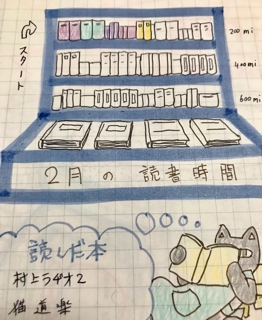 スタート
200 mi
400 mi
600 mi
2月の読書時間
読んだ本
村上ラヂオ2
猫道楽